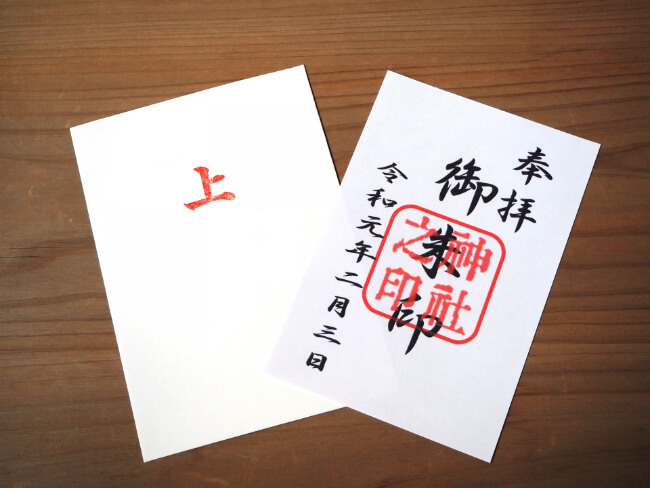 上
奉拝
御朱印
神社
之印
令和元年二月三日